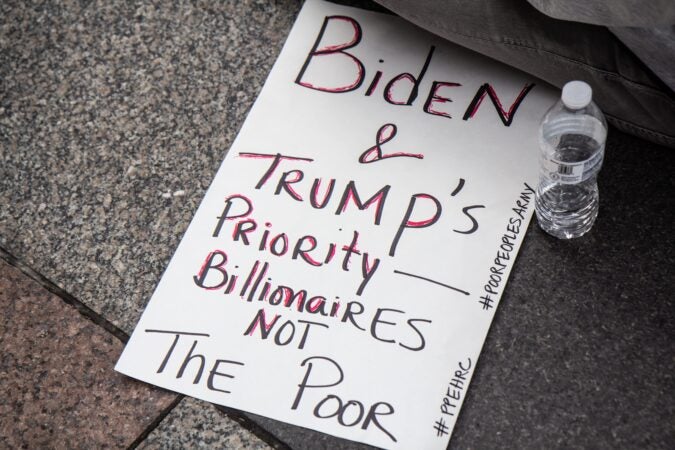 BiDEN
&
TRUMP's
PRiORity —
BillionaiRES
NOT
THE POOR
#POORPEOPLESARMY
#PPEHRC